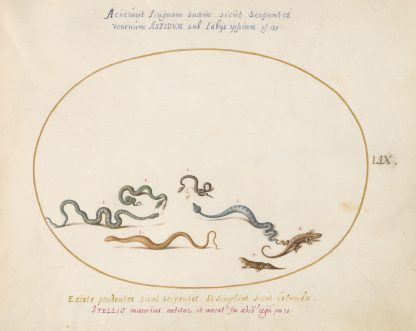 Acuerunt linguam suam sicut Serpentes
venenum ASPIDUM sub labijs ipsorum. ps. 140
LIX.
Estote prudentes sicut Serpentes. Et Simplices sicut Columbæ.
STELLIO manibus nititur et moratur in ædibus regis